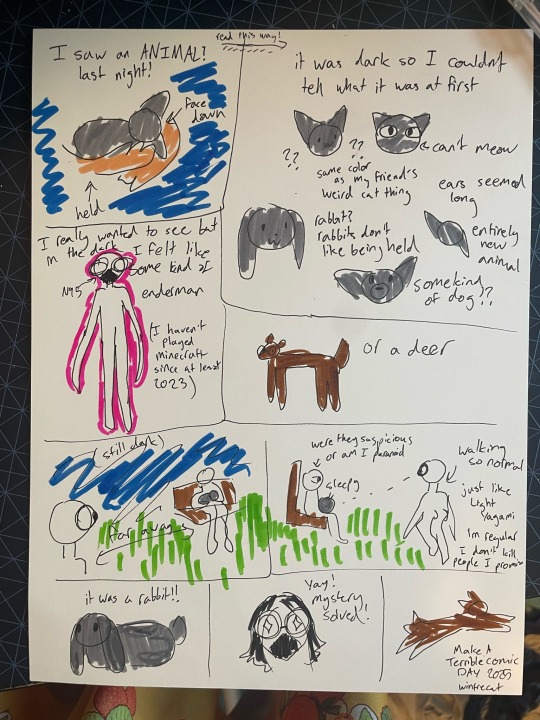 read this way!
I saw an ANIMAL?
last night!
face
down
held
it was dark so I couldn't
tell what it was at first
??
??
can't meow
same color
as my friend's
weird cat thing
ears seemed
long
entirely
new
animal
rabbit?
rabbits don't
like being held
some kind
of dog??
I really wanted to see but
in the dark I felt like
some kind of
enderman
N95
(I haven't
played
minecraft
since at least
2023)
or a deer
(still dark)
far away
were they suspicious
or am I paranoid
sleepy
walking
so normal
just like
Light
Yagami
I'm regular
I don't kill
people I promise
it was a rabbit!!
Yay!
mystery
solved!
Make A
Terrible comic
DAY 2025
wintrecat